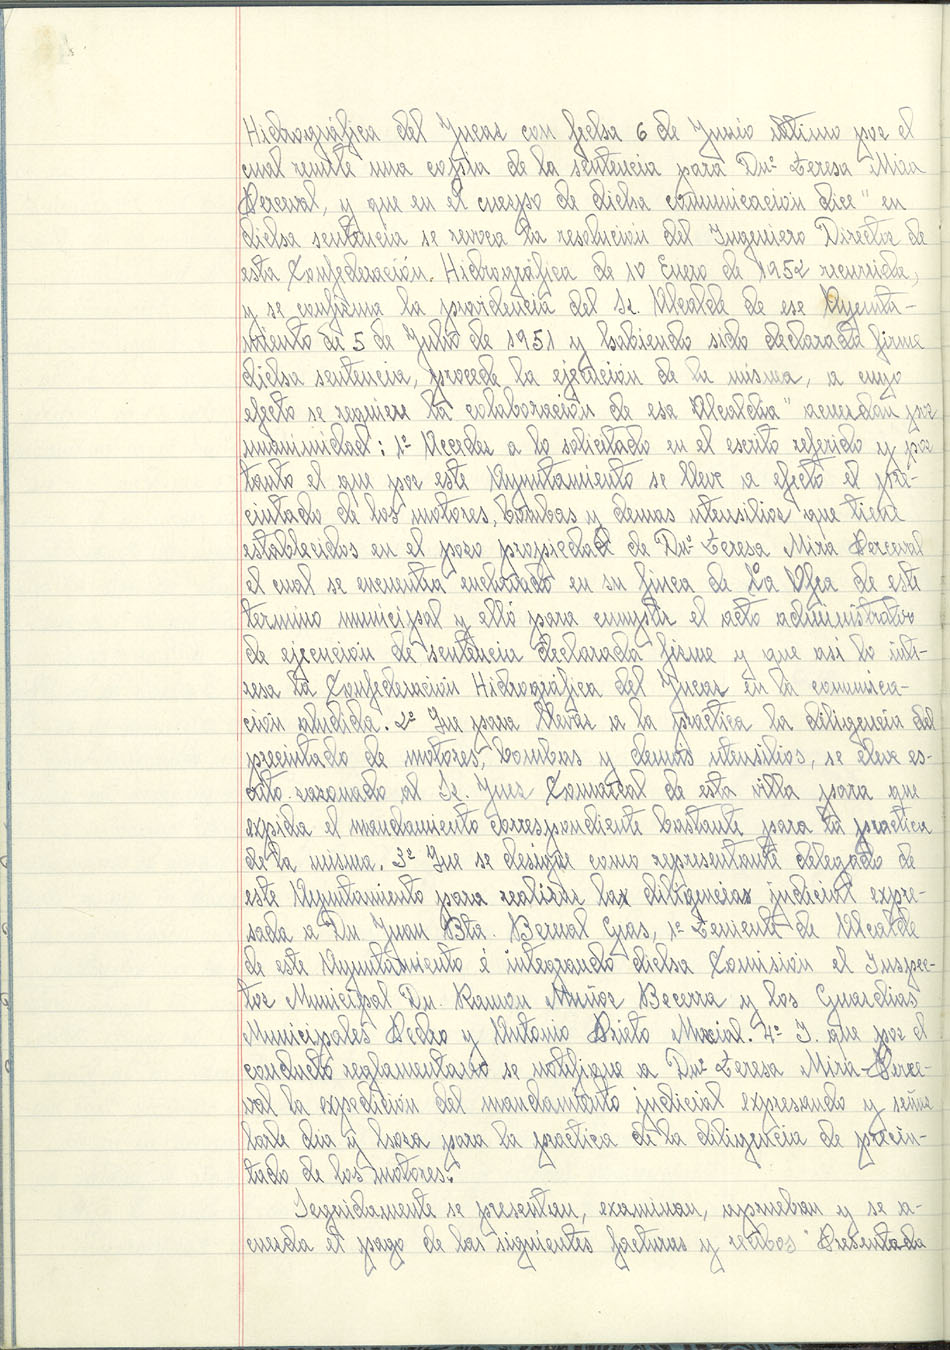 Hidrográfica del Jucar con fecha 6 de Junio ultimo por el
cual remite una copia de la sentencia para Dnª Teresa Mira
Perceval, y que en el cuerpo de dicha comunicacion dice " en
dicha sentencia se revoca la resolucion del Ingeniero Director de
esta Confederación Hidrográfica de 10 Enero de 1952 recurrida,
y se confirma la providencia del Sr. Alcalde de ese Ayunta-
miento de 5 de Julio de 1951 y habiendo sido declarada firme
dicha sentencia, procede la ejecucion de la misma, a cuyo
efecto se requiere la colaboracion de esa Alcaldia" acuerdan por
unanimidad: 1º Acceder a lo solicitado en el escrito referido y por
tanto el que por este Ayuntamiento se lleve a efecto el pre-
cintado de los motores, bombas y demas utensilios que tiene
establecidos en el pozo propiedad de Dnª Teresa Mira Perceval
el cual se encuentra enclavado en su finca de La Vega de este
termino municipal y ello para cumplir el acto administrativo
de ejecucion de sentencia declarada firme y que asi lo inte-
resa la Confederacion Hidrográfica del Jucar en la comunica-
ción aludida. 2º Que para llevar a la practica la diligencia del
precintado de motores, bombas y demas utensilios, se eleve es-
crito razonado al Sr. Juez Comarcal de esta villa para que
expida el mandamiento correspondiente bastante para la practica
de la misma. 3º Que se designe como representante delegado de
este Ayuntamiento para realizar las diligencias judicial expre-
sada a Dn Juan Bta. Bernal Egas, 1º Teniente de Alcalde
de este Ayuntamiento é integrando dicha Comision el Inspec-
tor Municipal Dn. Ramon Muñoz Becerra y los Guardias
Municipales Pedro y Antonio Prieto Macial. 4º Y. que por el
conducto reglamentario se notifique a Dnª Teresa Mira-Perce-
val la expedicion del mandamiento judicial expresando y seña
larle dia y hora para la practica de la diligencia de precin-
tado de los motores.
Seguidamente se presentan, examinan, aprueban y se a-
cuerda el pago de las siguientes facturas y recibos Presentada